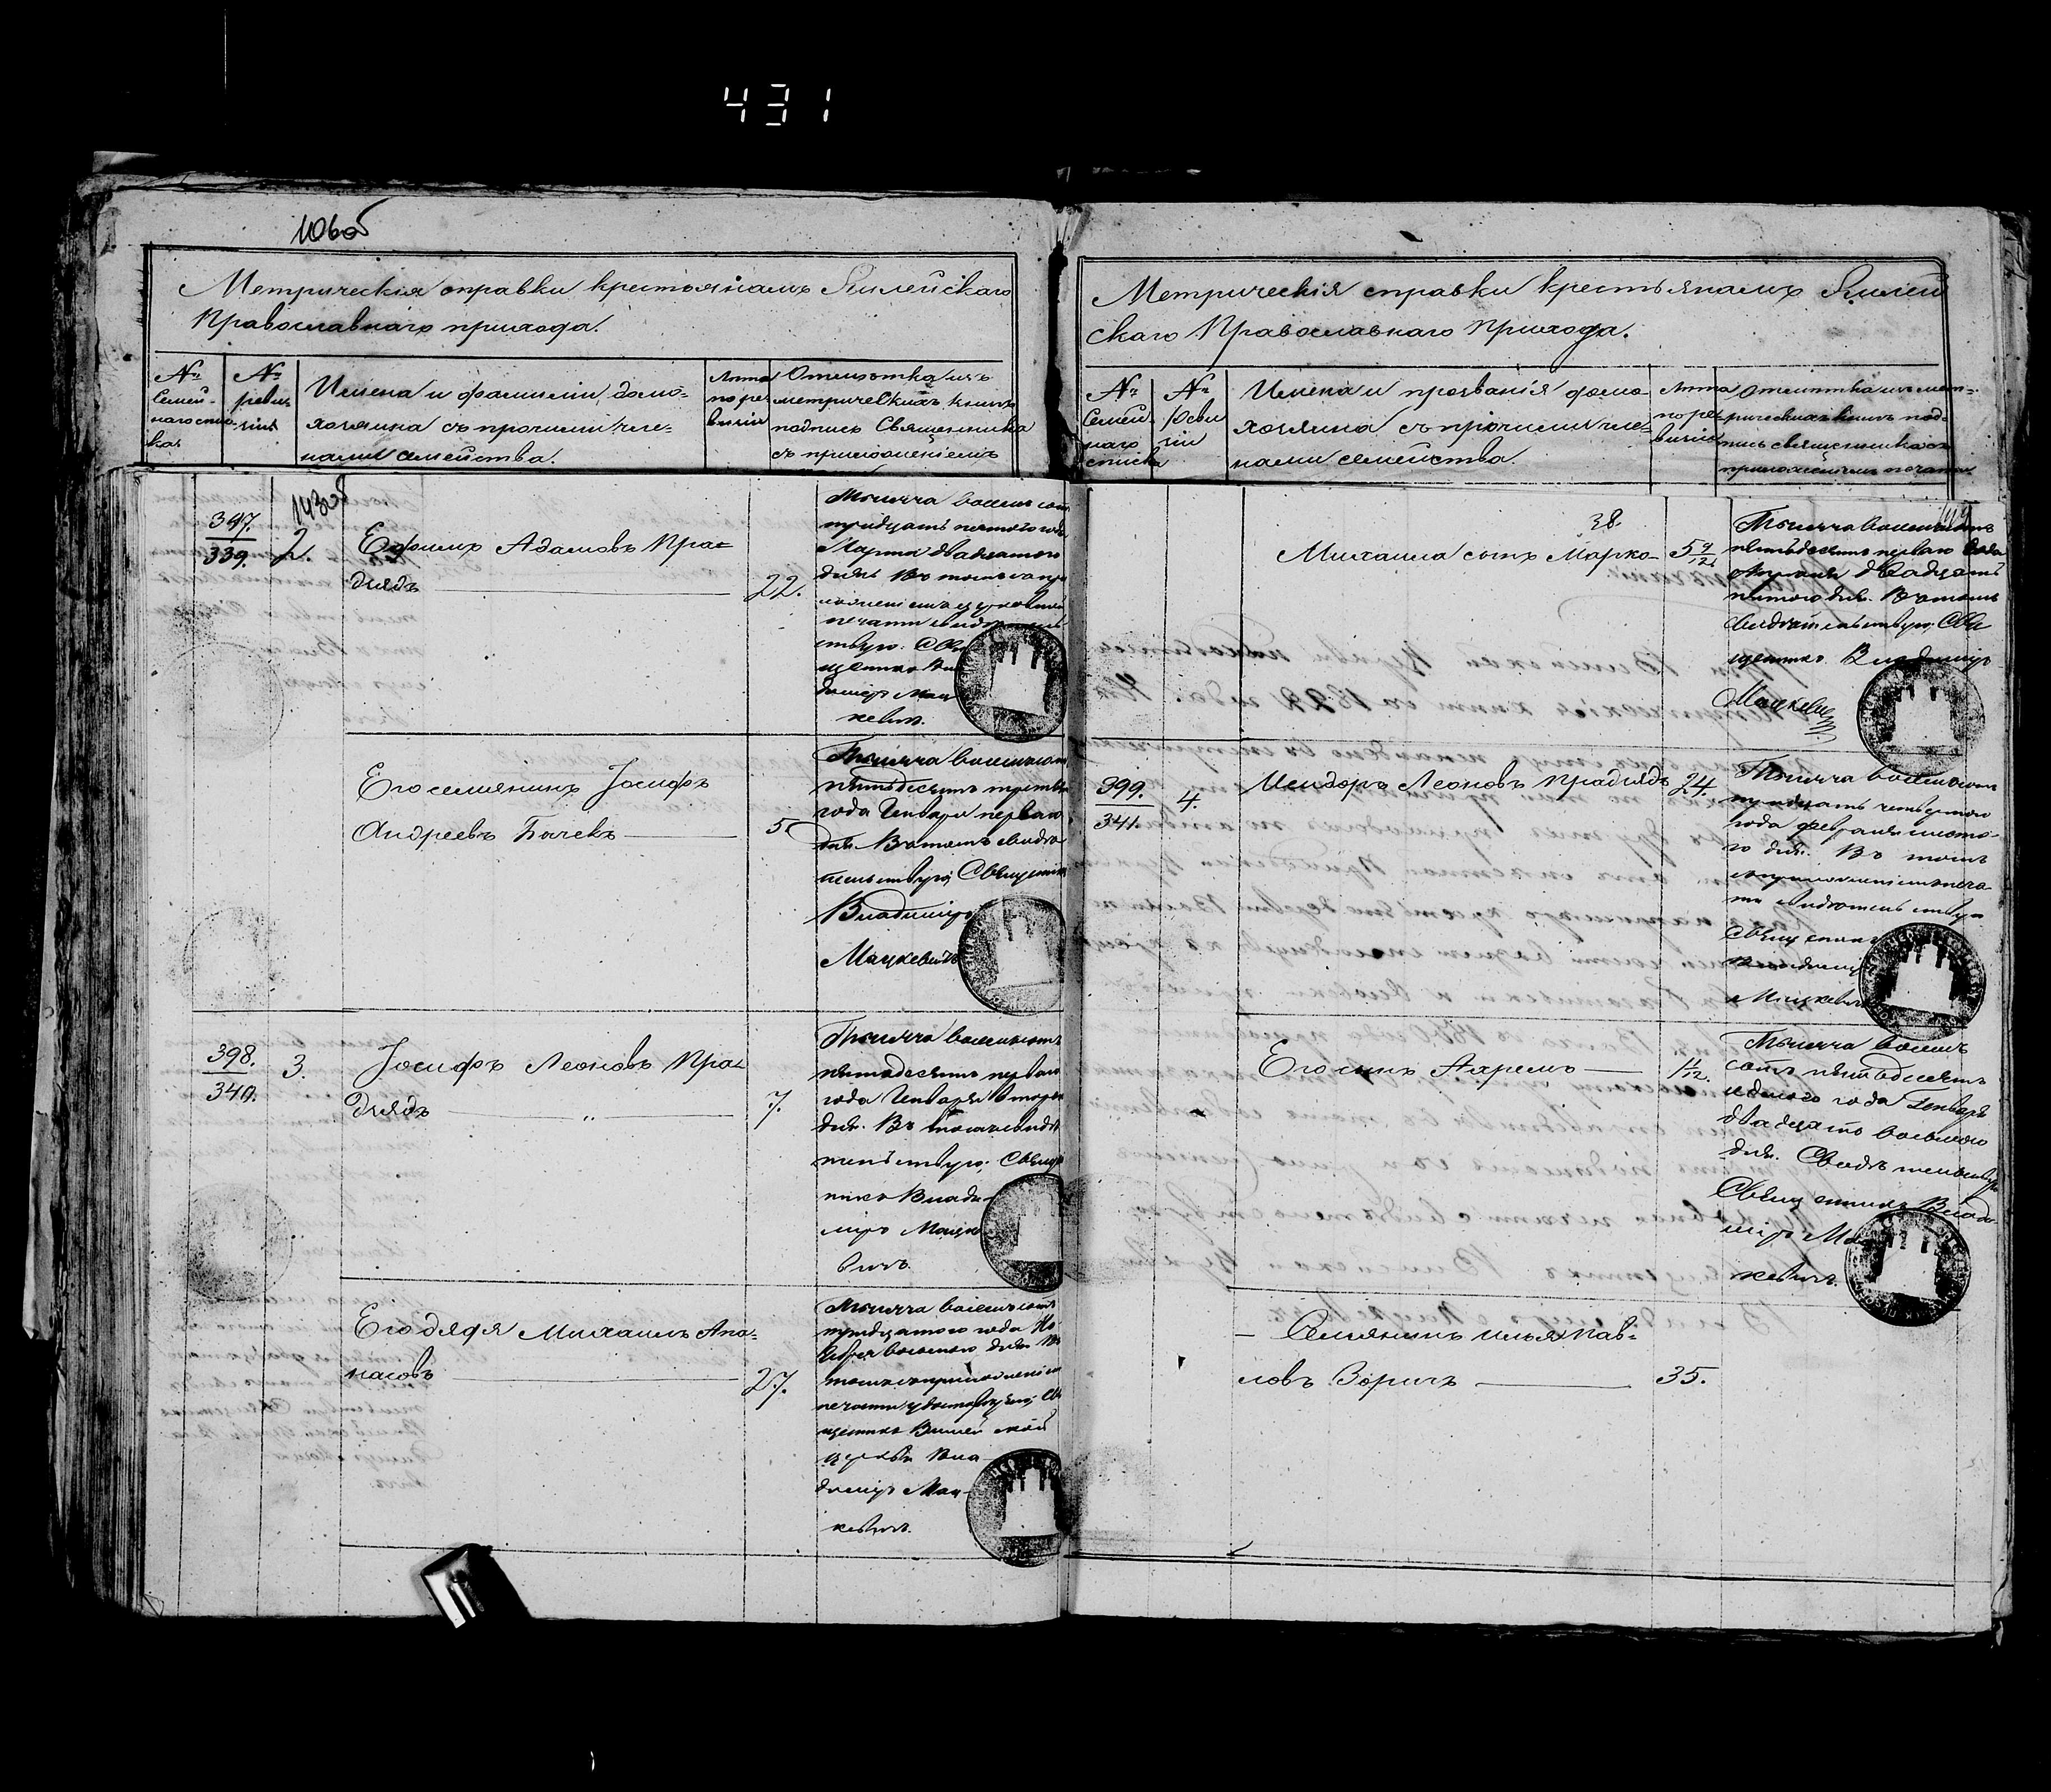 431
106об
Метрическія справки крестьянамъ Вилейскаго
Православнаго прихода.
№
Семей-
наго спис-
ка
№
реви-
зіи
Имена и фамиліи, домо-
хозяина съ прочими чле-
нами семейства.
Лѣта
по ре
визіи
Отмѣтка изъ
метрическихъ книгъ
подпись Священника
съ приложеніемъ
143об
397.
339.
2.
Ефимъ Адамовъ Пра-
дзядъ
22.
Тысяча восемьсотъ
тридцать пятого года
Марта двадцатого
дня. Въ томъ съ при
ложеніемъ церковной
печати свидѣтель-
ствую. Свя
щенникъ Вла
диміръ Мац
кевичъ.
Его семянинъ Іосифъ
Андреевъ Бычекъ
5
Тысяча восемьсотъ
пятьдесятъ третьяго
года Генваря перваго
дня. Въ томъ свидѣ
тельствую, Священникъ
Владиміръ
Мацкевичъ
398.
340.
3.
Іосифъ Леоновъ Пра-
дзядъ
7.
Тысяча восемьсотъ
пятьдесятъ перваго
года Генваря втораго
дня. Въ томъ свидѣ
тельствую. Священ
никъ Влади-
міръ Мацке
вичъ.
Его дядя Михаилъ Апа-
насовъ
27.
Тысяча восемьсотъ
тридцатого года Но
ября восьмого дня. Въ
томъ съ приложеніемъ
печати удостовѣряю, Свя
щенникъ Вилейской
церкви Вла
диміръ Мац-
кевичъ.
Метрическія справки крестьянамъ Вилей
скаго Православнаго Прихода.
№
Семей-
наго
списка
№
Реви
зіи
Имена и прозванія домо-
хозяина съ прочими чле-
нами семейства.
Лѣта
по ре
визіи
Отмѣтка изъ мет-
рическихъ книгъ под-
пись священника съ
приложеніемъ печати
38.
Михаила сынъ Марко
5 4/12
Тысяча восемьсотъ
пятьдесятъ перваго года
двадцать
пятого дня. Въ томъ
свидѣтельствую, Свя
щенникъ Владиміръ
Мацкевичъ
399.
341.
4.
Исидоръ Леоновъ Прадзядъ
24
Тысяча восемьсотъ
тридцать четвертого
года февраля шесто-
го дня. Въ томъ
съ приложеніемъ печа
ти свидѣтельствую
Священникъ
Владиміръ
Мацкевичъ
Его сынъ Ахремъ
1 11/12.
Тысяча восемь
сотъ пятьдесятъ
седьмого года Генваря
двадцать восьмого
дня. Свидѣтельствую
Священникъ Влади-
міръ Мац
кевичъ.
— Семянинъ Илья Пав-
ловъ Зоричъ
35.